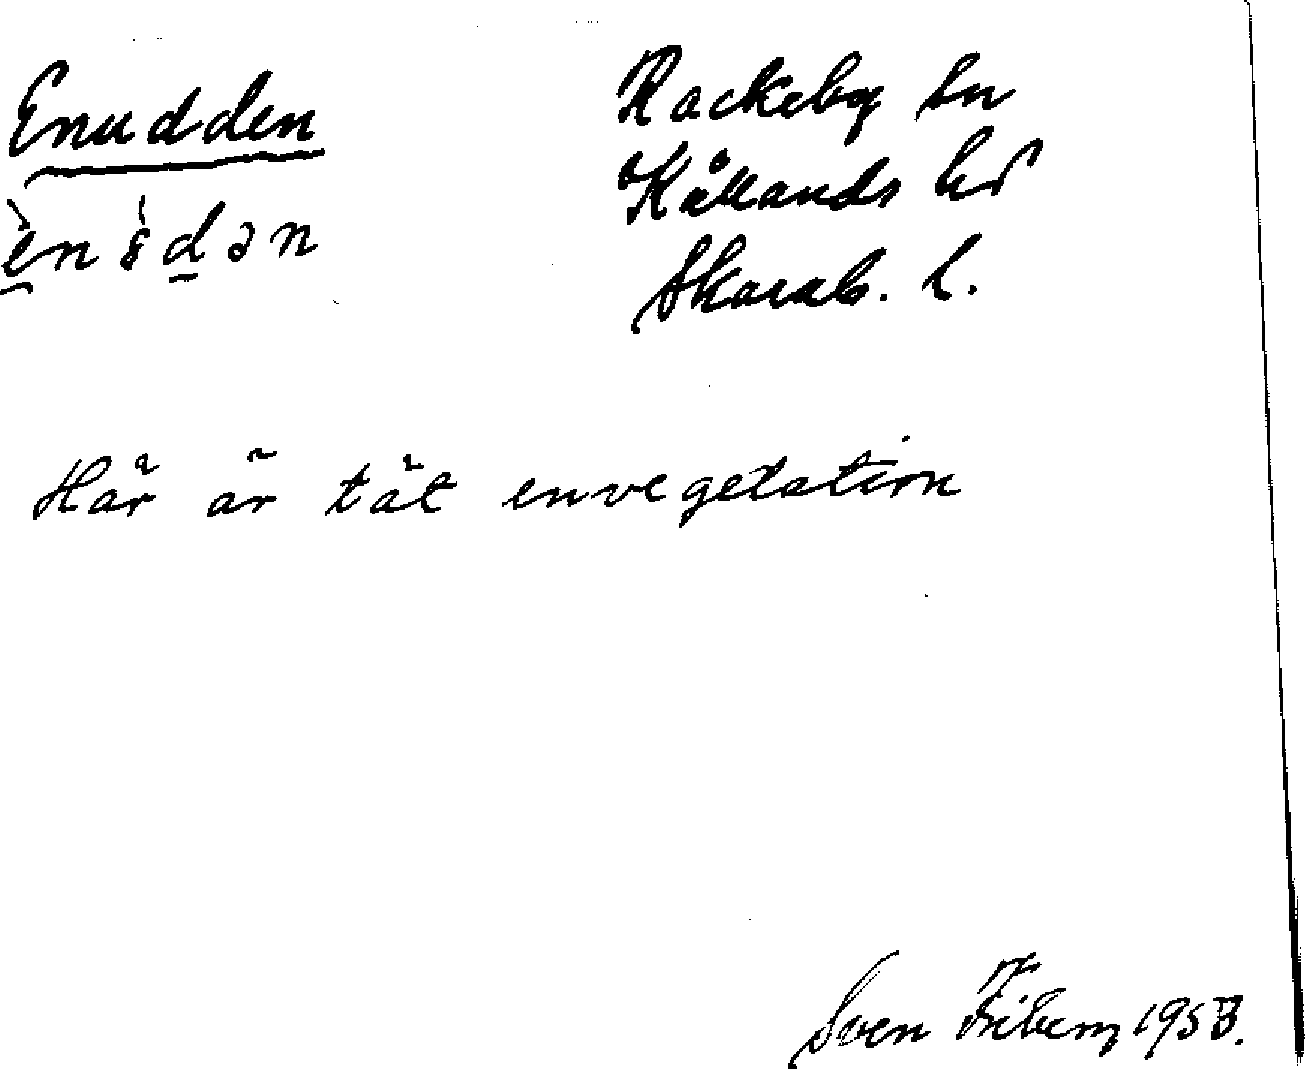 Enudden
Rackeby sn
Kållands hd
Skarab. l.
Här är tät envegetation
Sven Friberg 1953.